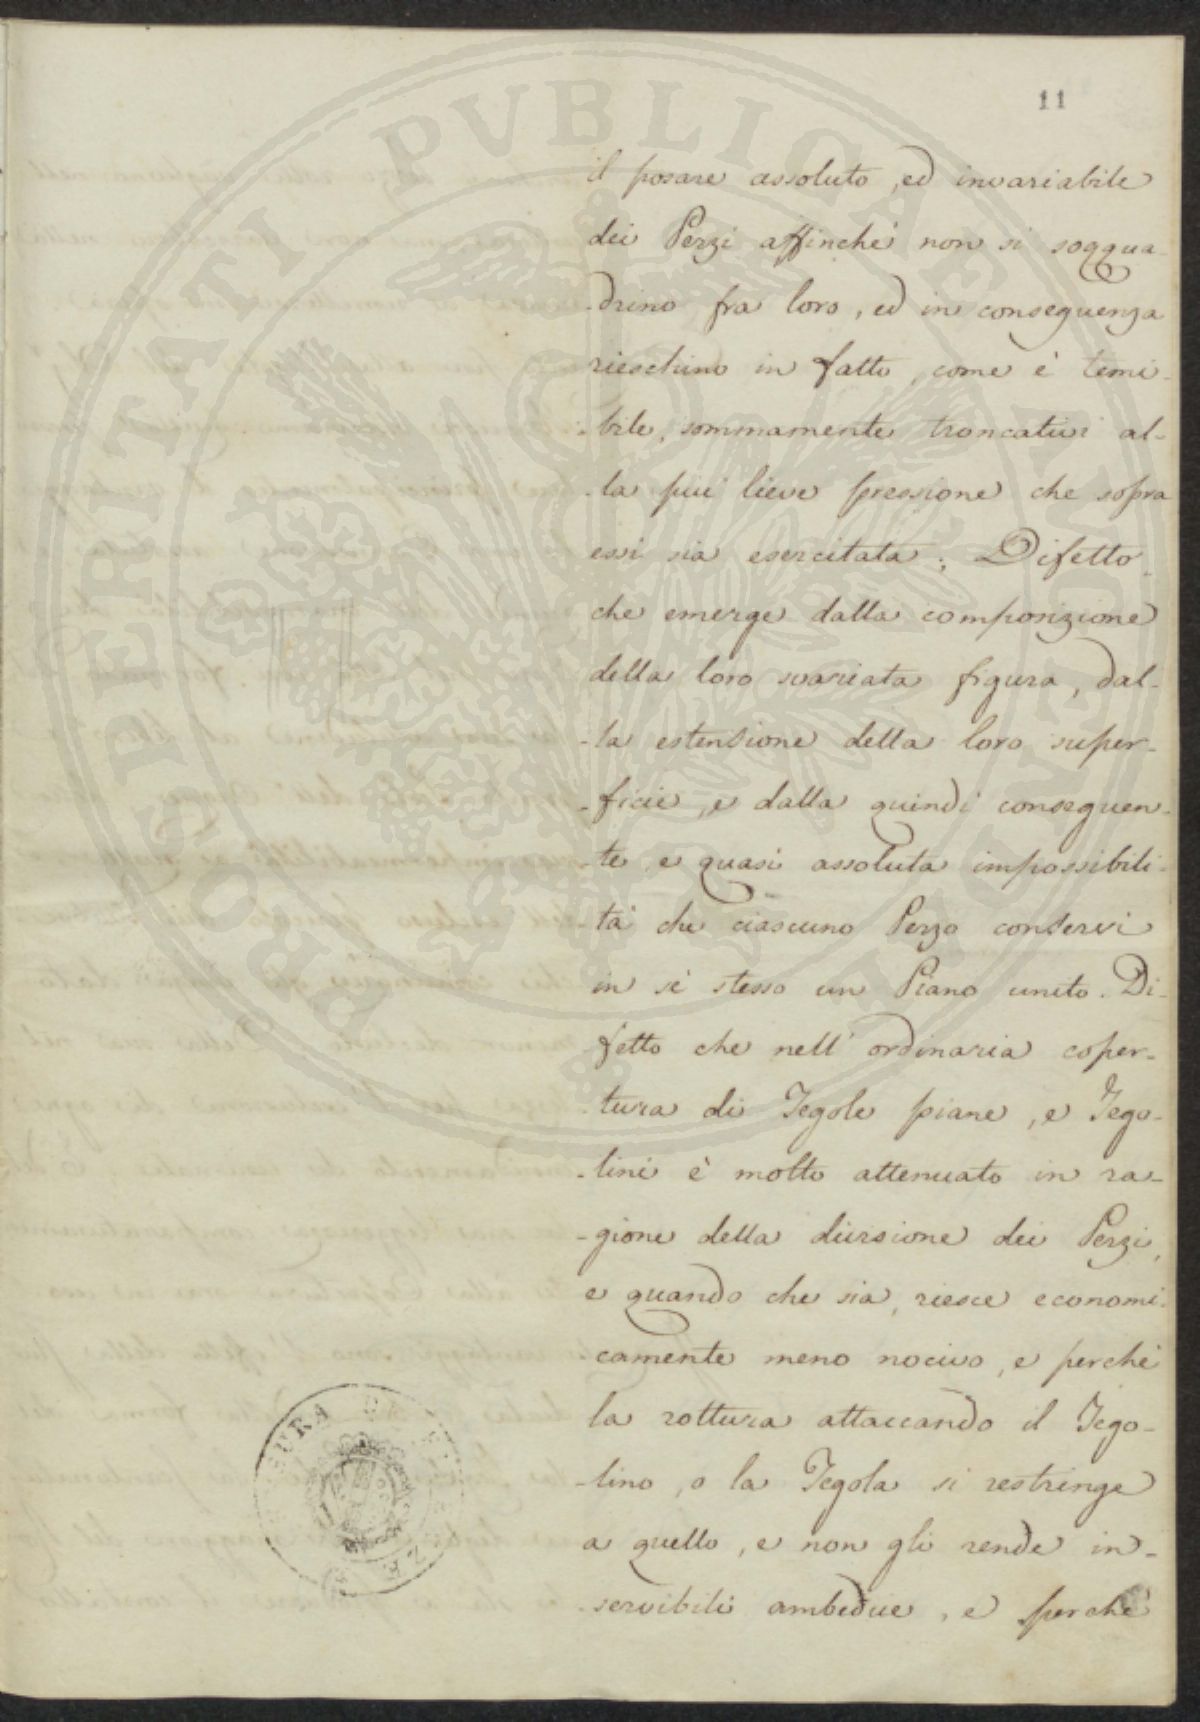 11
il posare assoluto, ed invariabile
dei Pezzi affinchè non si soqqua-
-drino fra loro, ed in conseguenza
rieschino in fatto, come è temi-
-bile, sommamente troncativi al-
-la più lieve pressione che sopra
essi sia esercitata; Difetto
che emerge dalla composizione
della loro svariata figura, dal-
-la estensione della loro super-
-ficie, e dalla quindi conseguen-
-te, e quasi assoluta impossibili-
-tà che ciascuno Pezzo conservi
in sè stesso un Piano unito. Di-
fetto che nell' ordinaria coper-
-tura di Tegole piane, e Tego-
-lini è molto attenuato in ra-
-gione della divisione dei Pezzi,
e quando che sia, riesce economi-
-camente meno nocivo, e perchè
la rottura attaccando il Tego-
-lino, o la Tegola si restringe
a quello, e non gli rende in-
-servibili ambedue, e perchè
PROSPERITATI PVBLICAE AVGENDAE